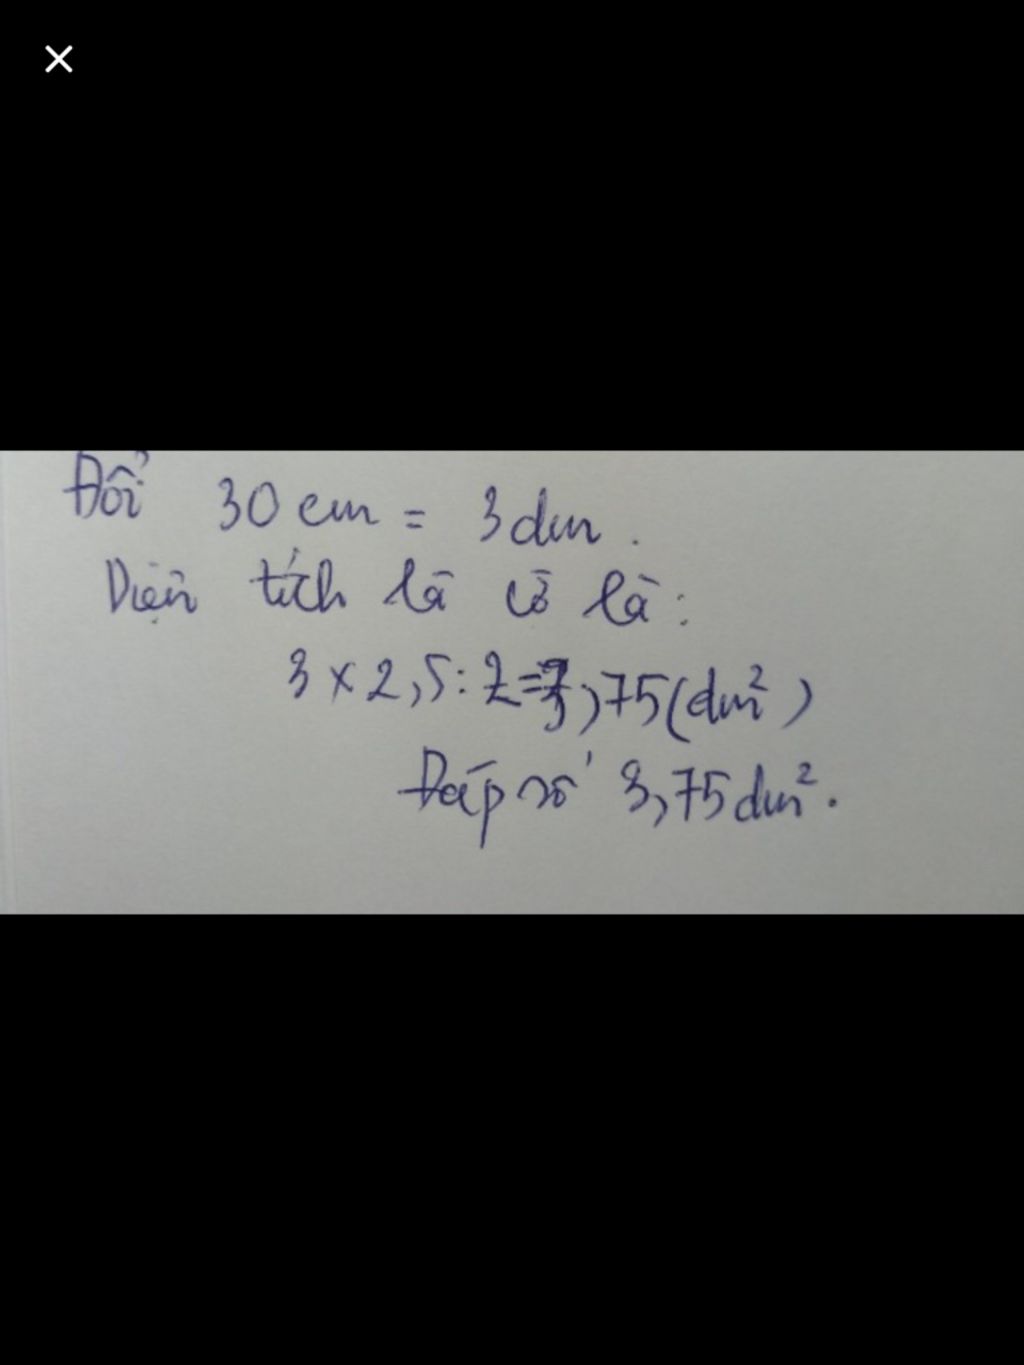 Đổi 30 cm = 3 dm.
Diện tích lá cờ là:
3 x 2,5 : 2 = 3,75 (dm²)
Đáp số 3,75 dm².